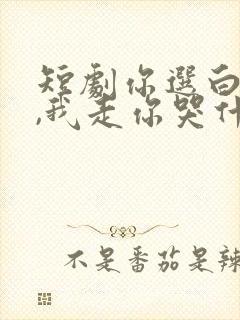 短劇你選白
,我走你哭什
不是番茄是辣